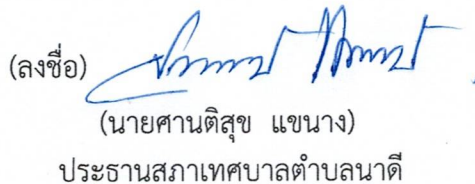 (ลงชื่อ)
(นายศานติสุข แขนาง)
ประธานสภาเทศบาลตำบลนาดี